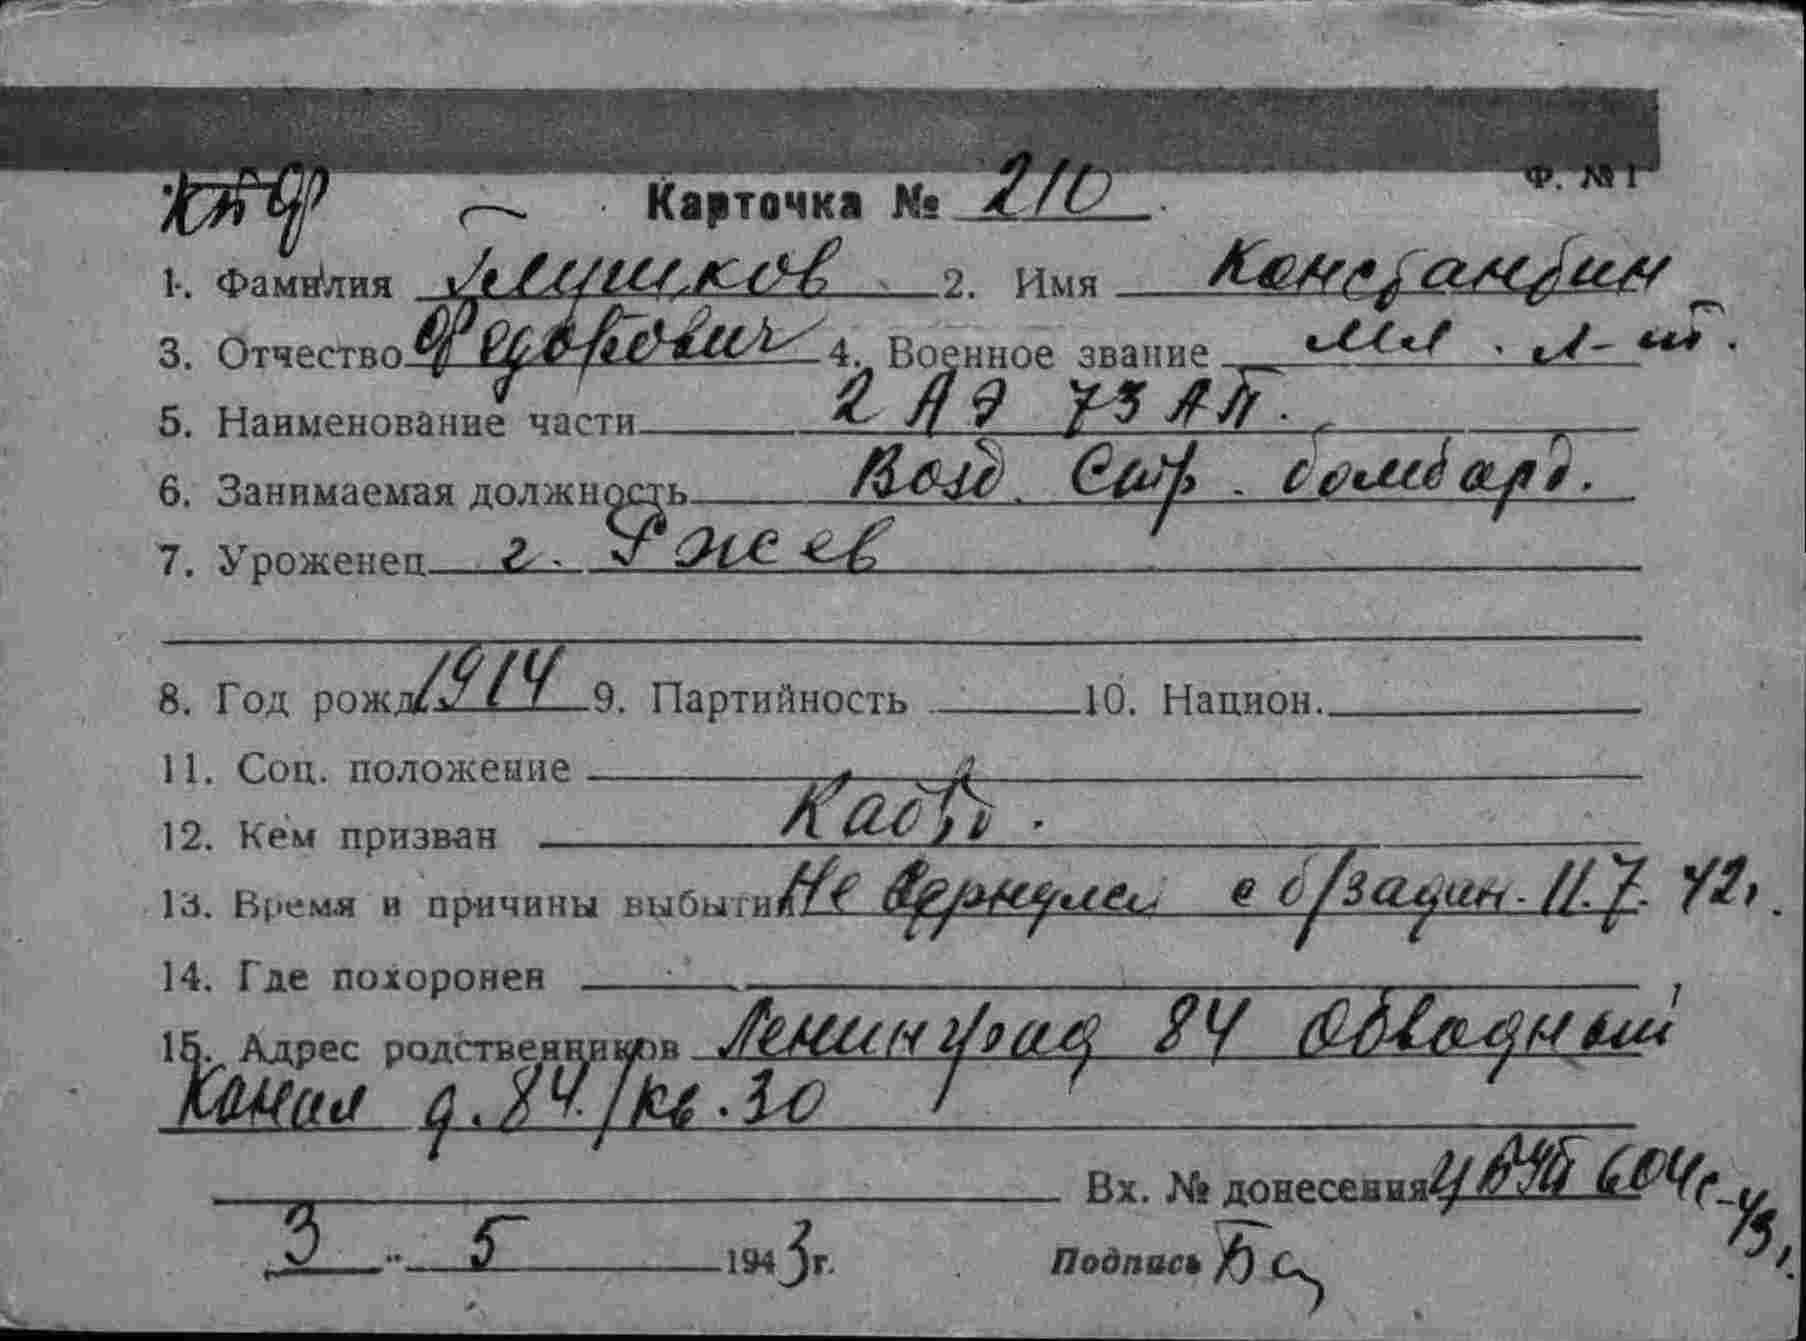 Ф. № 1
КБФ Карточка № 210
1. Фамилия Глушков 2. Имя Константин
3. Отчество Федорович 4. Военное звание мл. л-т.
5. Наименование части 2 АЭ 73 АП.
6. Занимаемая должность Возд. Стр. бомбард.
7. Уроженец г. Ржев
8. Год рожд. 1914 9. Партийность 10. Национ.
11. Соц. положение
12. Кем призван Кадр.
13. Время и причины выбытия Не вернулся с б/задан. 11.7.42г.
14. Где похоронен
15. Адрес родственников Ленинград 84 Обводный
Канал д. 84./кв. 30
Вх. № донесения 604с-43г.
3 " 5 1943 г. Подпись